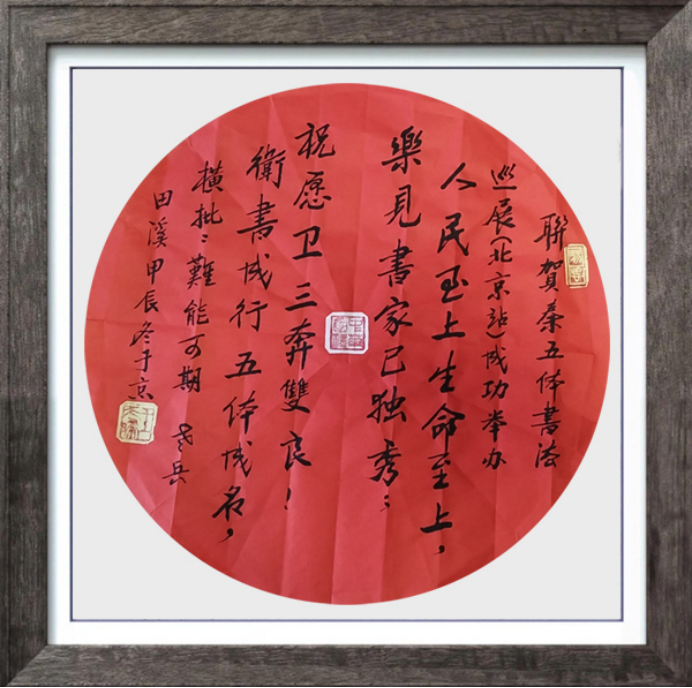 聯賀秦五体書法
巡展(北京站)成功举办
人民至上生命至上,
樂見書家已独秀;
祝愿卫三奔雙良!
衛書成行五体成名,
横批:難能可期 老岳
田溪甲辰冬于京